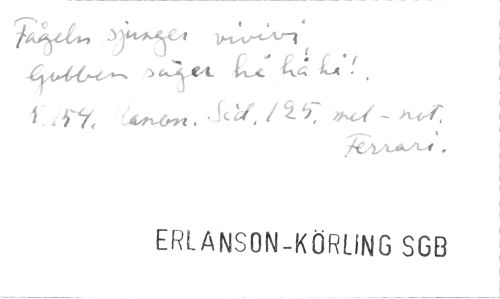 Fågeln sjunger vivivi,
Gubben säger hå hå hå!
154. Kanon. Sid. 125. mel-not.
Ferrari.
ERLANSON-KÖRLING SGB